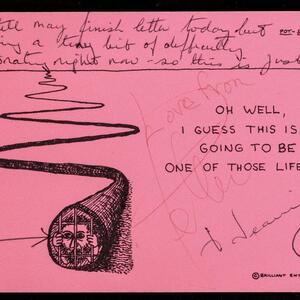 still may finish letter today but
a tiny bit of difficulty
right now - so this is just
Love from
OH WELL,
I GUESS THIS IS
GOING TO BE
ONE OF THOSE LIFE
© BRILLIANT EN